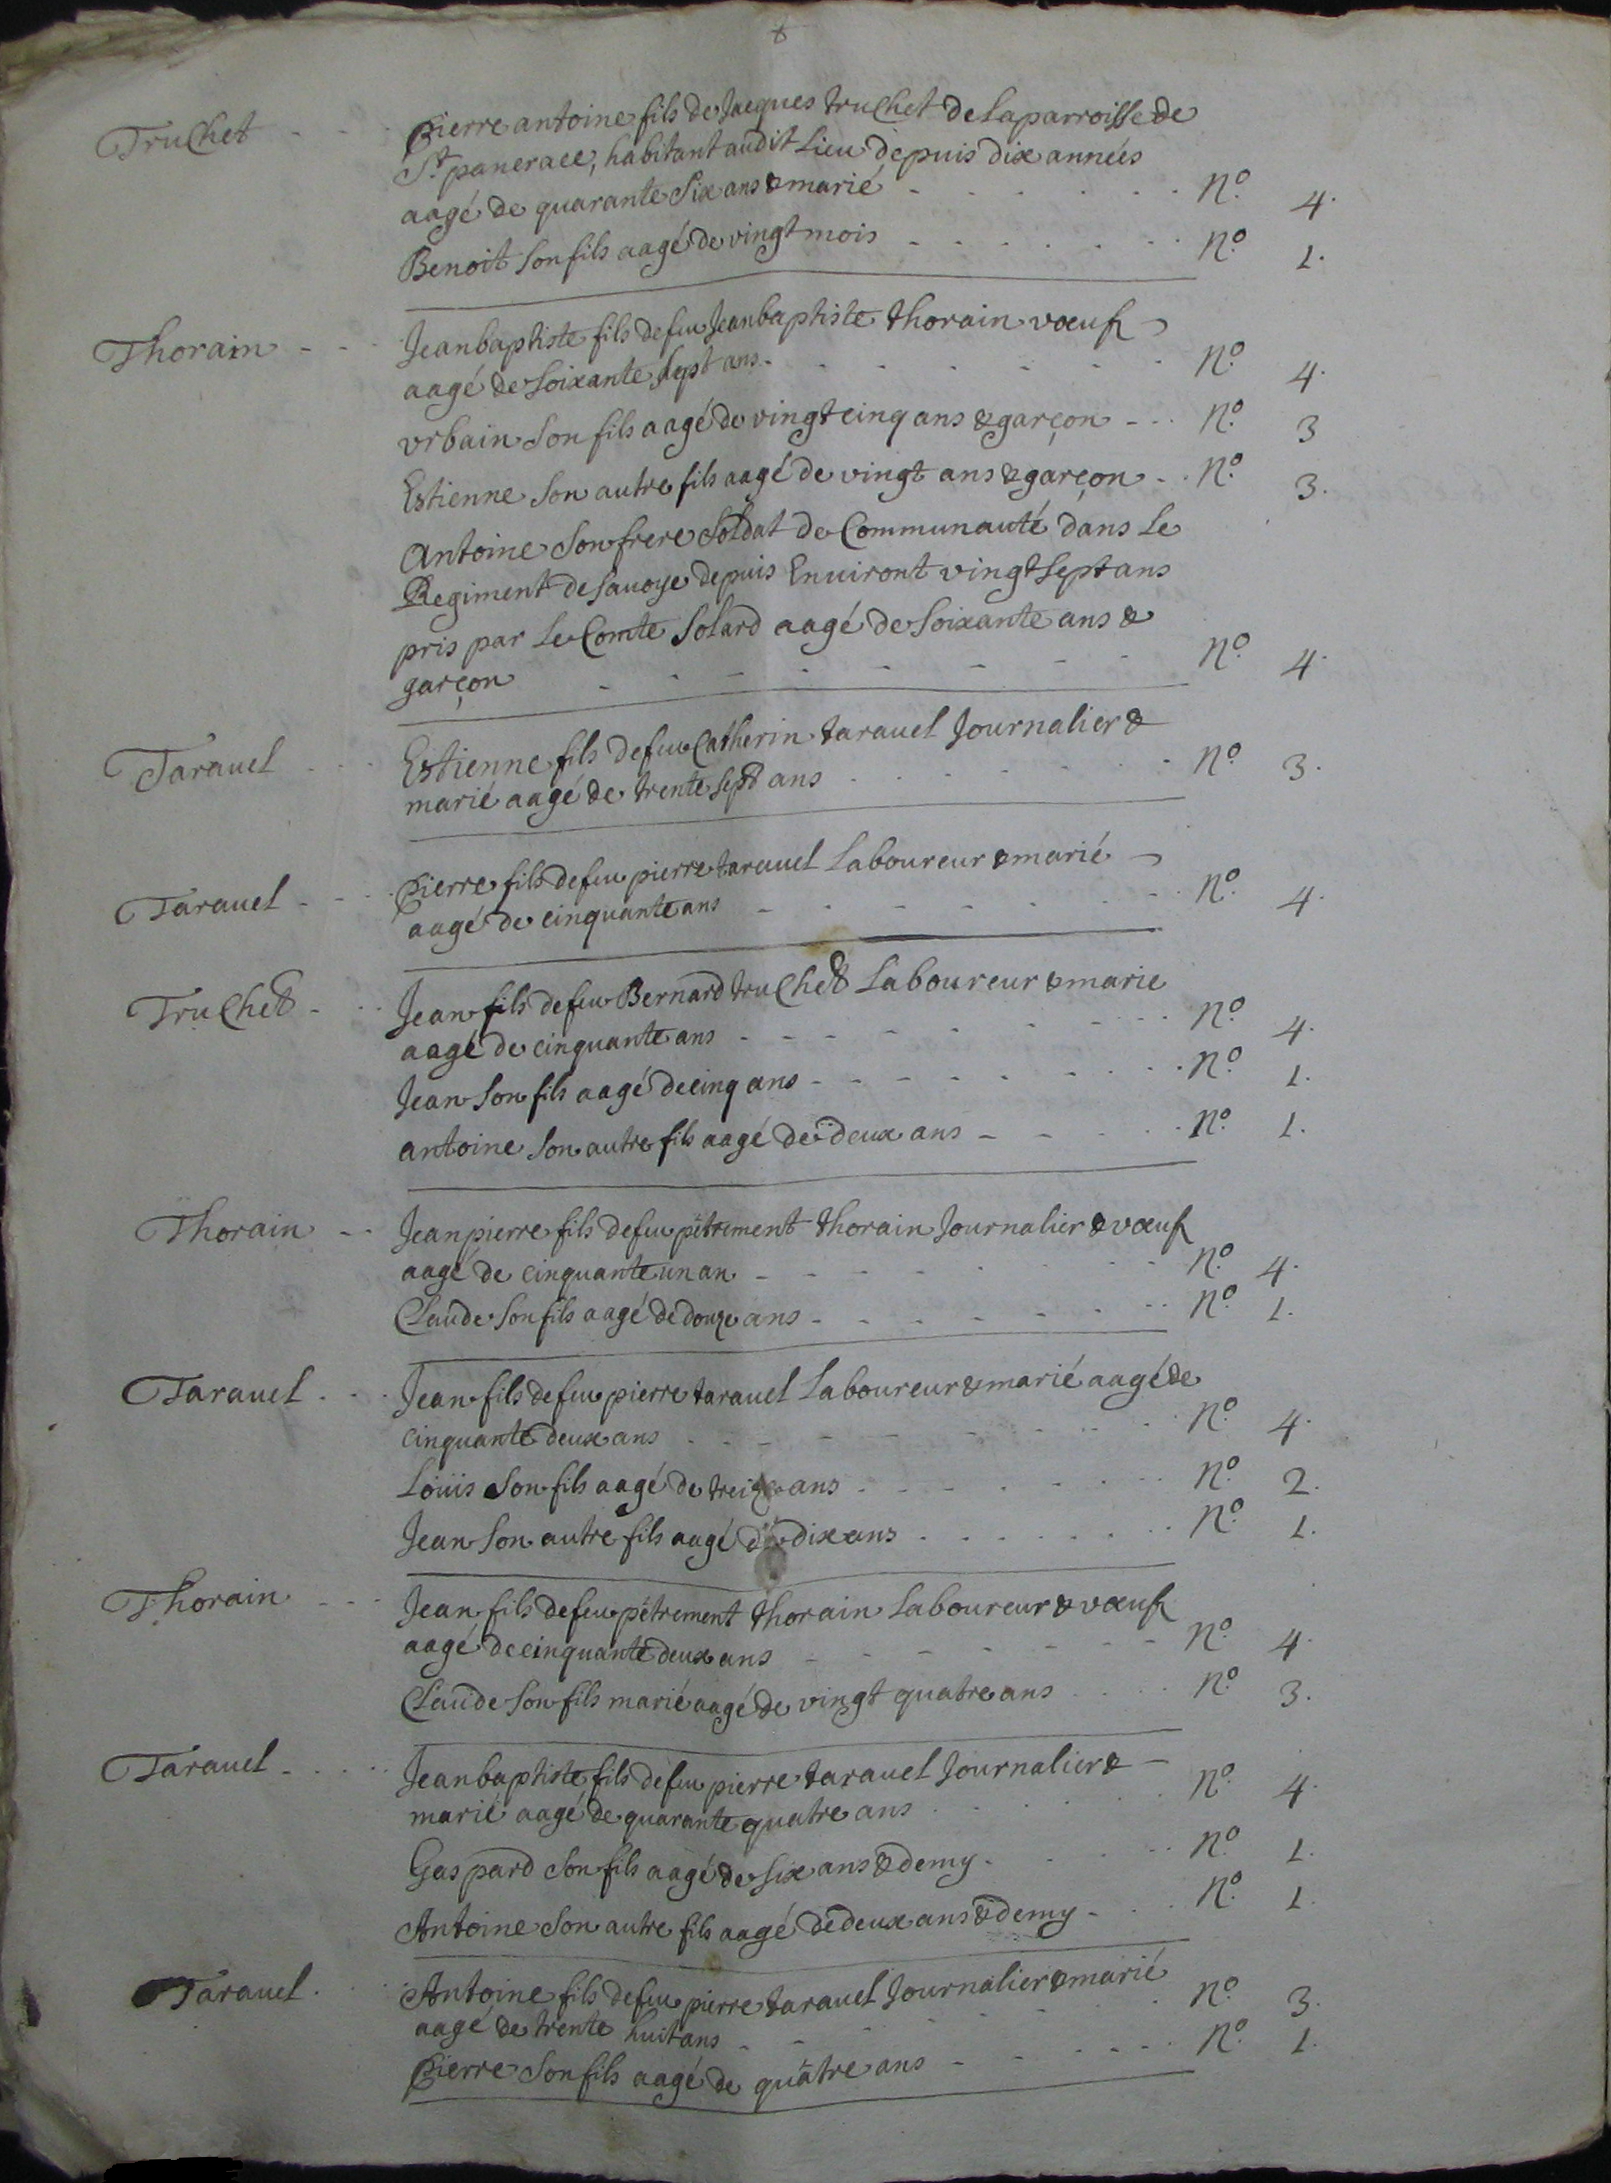 Truchet - - - Pierre antoine fils de Jacques truchet de la parroisse de
St panerace, habitant audit Lieu depuis dix années
aagé de quarante Six ans & marié - - - - - - No. 4.
Benoit Son fils aagé de vingt mois - - - - - - No. 1.
Thorain - - - Jean baptiste fils de feu Jean baptiste thorain vœuf
aagé de Soixante sept ans - - - - - - - No. 4.
vrbain Son fils aagé de vingt cinq ans & garçon - - - No. 3
Estienne Son autre fils aagé de vingt ans & garçon - - No. 3.
Antoine Son frere Soldat de Communauté dans Le
Regiment de Sauoye depuis Enuiront vingt Sept ans
pris par Le Comte Solard aagé de Soixante ans &
garçon - - - - - - - No. 4.
Tarauel - - - Estienne fils de feu Catherin tarauel Journalier &
marié aagé de trente sept ans - - - - - - No. 3.
Tarauel - - - Pierre fils de feu pierre tarauel Laboureur & marié
aagé de cinquante ans - - - - - - - No. 4.
Truchet - - - Jean fils de feu Bernard truchet Laboureur & marie
aagé de cinquante ans - - - - - - - No. 4.
Jean Son fils aagé de cinq ans - - - - - - - No. 1.
antoine Son autre fils aagé de deux ans - - - - - No. 1.
Thorain - - Jean pierre fils de feu pétrement thorain Journalier & vœuf
aagé de cinquante un an - - - - - - - No. 4.
Claude Son fils aagé de douze ans - - - - - - - No. 1.
Tarauel - - - Jean fils de feu pierre tarauel Laboureur & marié aagé de
cinquante deux ans - - - - - - - No. 4.
Loüis Son fils aagé de treize ans - - - - - - No. 2.
Jean Son autre fils aagé de dix ans - - - - - - No. 1.
Thorain - - - Jean fils de feu pétrement thorain Laboureur & vœuf
aagé de cinquante deux ans - - - - - - No. 4.
Claude Son fils marié aagé de vingt quatre ans - - - - No. 3.
Tarauel - - - Jean baptiste fils de feu pierre tarauel Journalier & -
marié aagé de quarante quatre ans - - - - - No. 4.
Gaspard Son fils aagé de Six ans & demy - - - - - No. 1.
Antoine Son autre fils aagé de deux ans & demy - - - No. 1.
Tarauel - - Antoine fils de feu pierre tarauel Journalier & marié
aagé de trente huit ans - - - - - - - No. 3.
Pierre Son fils aagé de quatre ans - - - - - - No. 1.